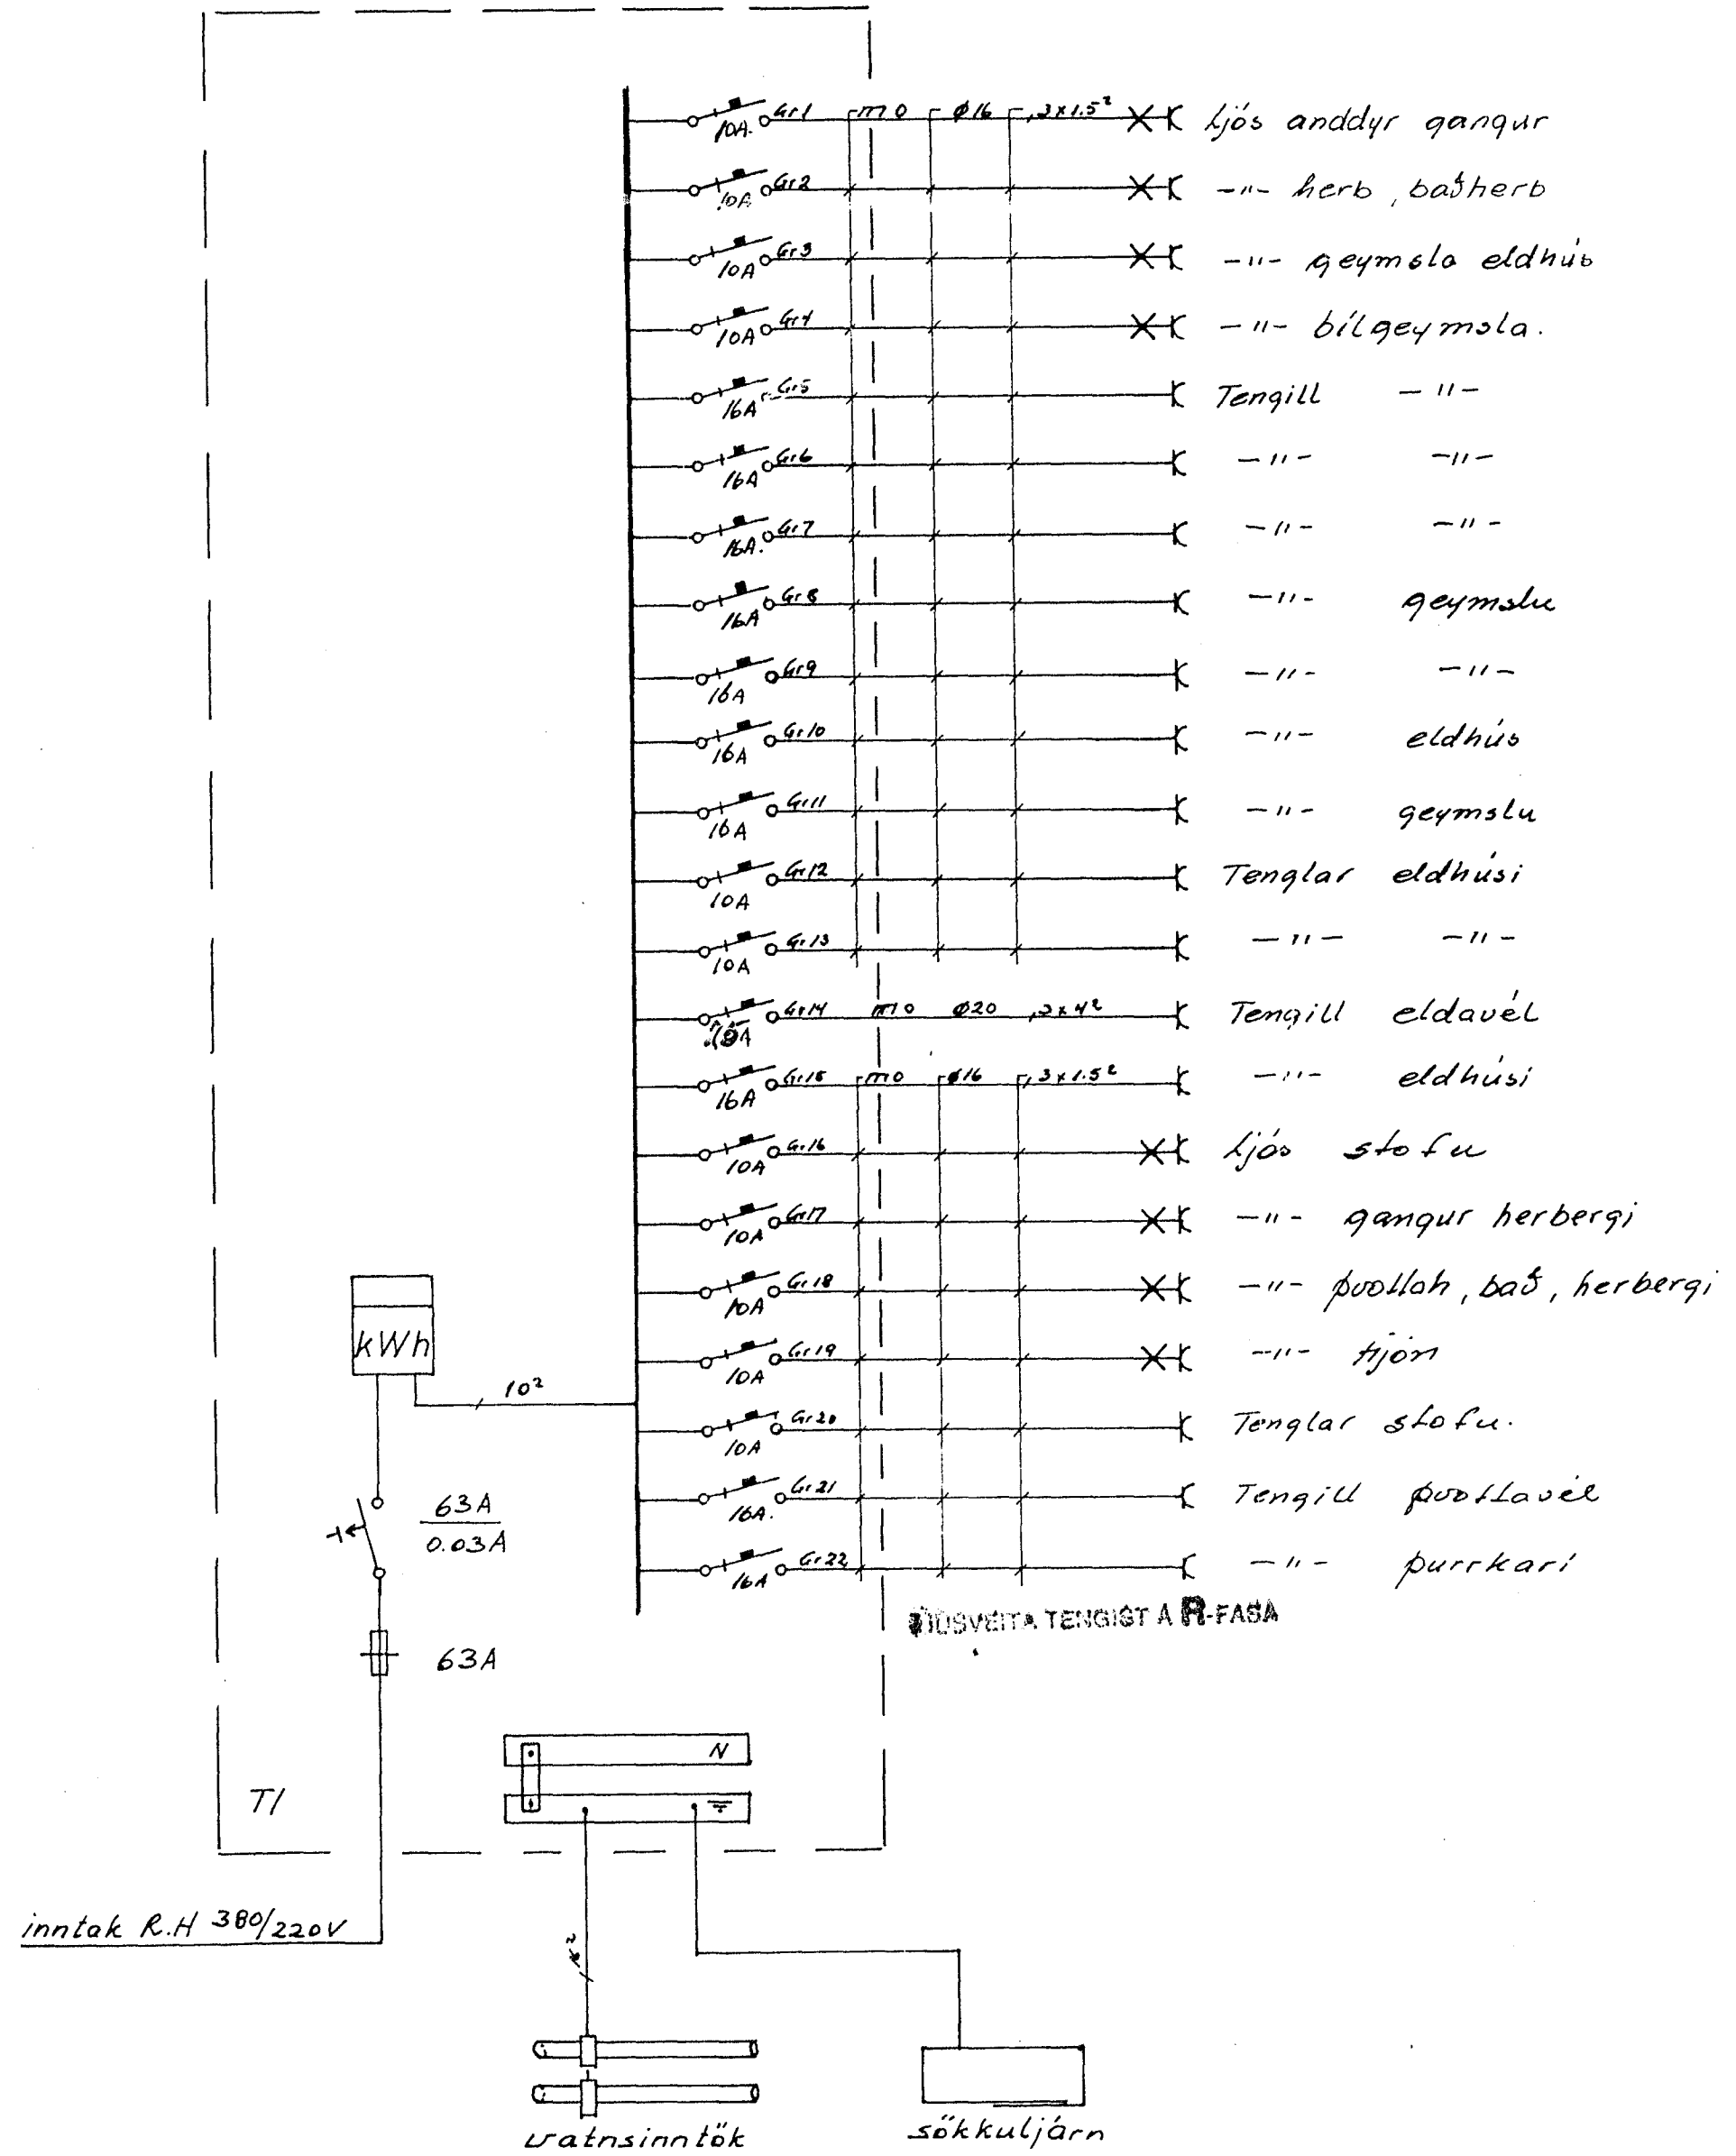 10A. Gr1 m0 ø16 3x1.5² Ljós anddyr gangur
10A Gr2 -"- herb, baðherb
10A Gr3 -"- geymsla eldhús
10A Gr4 -"- bílgeymsla.
16A Gr5 Tengill -"-
16A Gr6 -"- -"-
16A. Gr7 -"- -"-
16A Gr8 -"- geymslu
16A Gr9 -"- -"-
16A Gr10 -"- eldhús
16A Gr11 -"- geymslu
10A Gr12 Tenglar eldhúsi
10A Gr13 -"- -"-
Gr14 m0 ø20 4² Tengill eldavél
16A Gr15 m0 ø16 3x1.5² -"- eldhúsi
10A Gr16 Ljós stofu
10A Gr17 -"- gangur herbergi
10A Gr18 -"- þvottah, bað, herbergi
10A Gr19 -"-
10A Gr20 Tenglar stofu.
16A. Gr21 Tengill þvottavél
16A Gr22 -"- þurrkari
TENGIST A R-FASA
kWh
10²
63A
0.03A
63A
N
T1
inntak R.H 380/220V
vatnsinntök
sökkuljárn